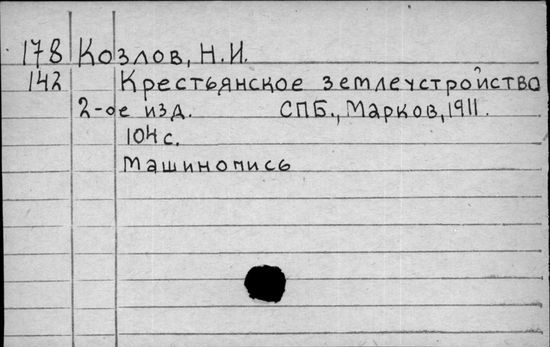 178 Козлов, Н.И.
142 Крестьянское землеустройство
2-ое изд. СПБ., Марков, 1911.
104 с.
Машинопись